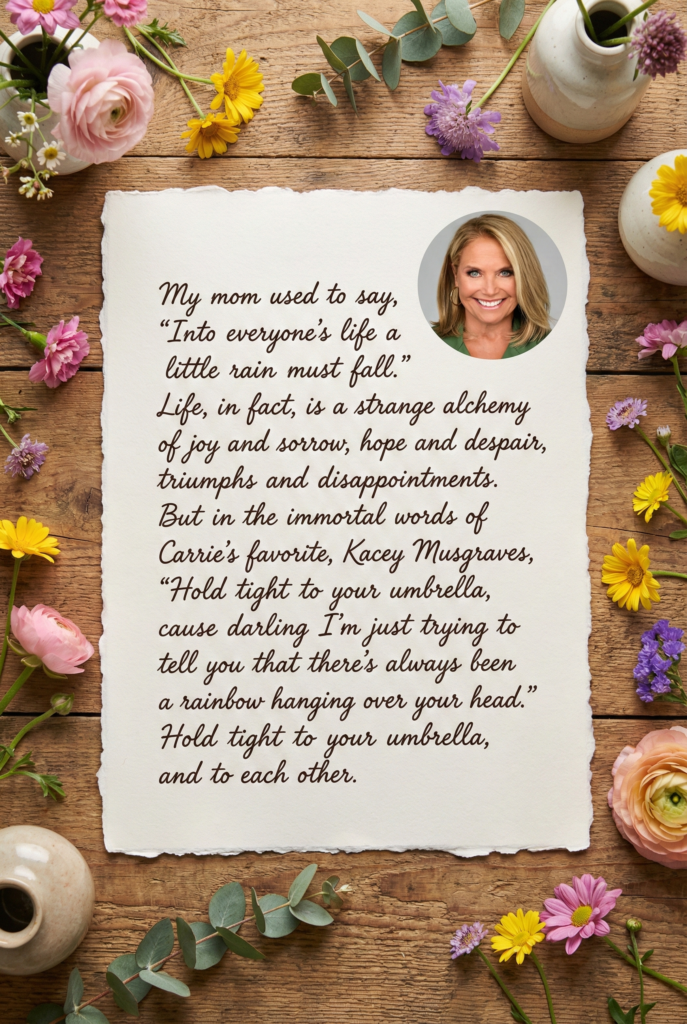 My mom used to say,
“Into everyone’s life a
little rain must fall.”
Life, in fact, is a strange alchemy
of joy and sorrow, hope and despair,
triumphs and disappointments.
But in the immortal words of
Carrie’s favorite, Kacey Musgraves,
“Hold tight to your umbrella,
cause darling I’m just trying to
tell you that there’s always been
a rainbow hanging over your head.”
Hold tight to your umbrella,
and to each other.